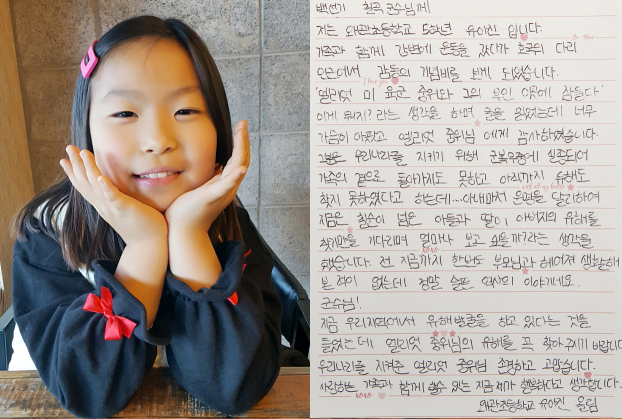 백선기 칠곡 군수님께
저는 왜관초등학교 5학년 유아진 입니다.
가족과 함께 강변에 운동을 갔다가 호국의 다리
인근에서 감동의 기념비를 보게 되었습니다.
I love you
'엘리엇 미 육군 중위와 그의 부인 이곳에 잠들다'
이게 뭐지? 라는 생각을 하며 글을 읽었는데 너무
가슴이 아팠고 엘리엇 중위님 에게 감사하였습니다.
그분은 우리나라를 지키기 위해 군복무중에 실종되어
가족의 곁으로 돌아가지도 못하고 아직까지 유해도
찾지 못하였다고 하는데...아내마저 운명을 달리하여
지금은 칠순이 넘은 아들과 딸이 아버지의 유해를
찾기만을 기다리며 얼마나 보고 싶을까? 라는 생각을
했습니다. 전 지금까지 한번도 부모님과 헤어져 생활해
본 적이 없는데 정말 슬픈 역사의 이야기네요.
군수님!
지금 우리지역에서 유해발굴을 하고 있다는 것을
들었는데 엘리엇 중위님의 유해를 꼭 찾아주시기 바랍니다
우리나라를 지켜준 엘리엇 중위님 존경하고 고맙습니다.
사랑하는 가족과 함께 할수 있는 지금 제가 행복하다고 생각합니다.
왜관초등학교 유아진 올림